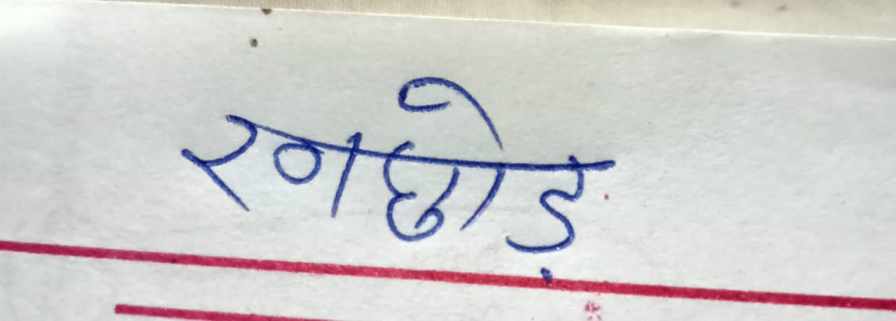 रणछोड़